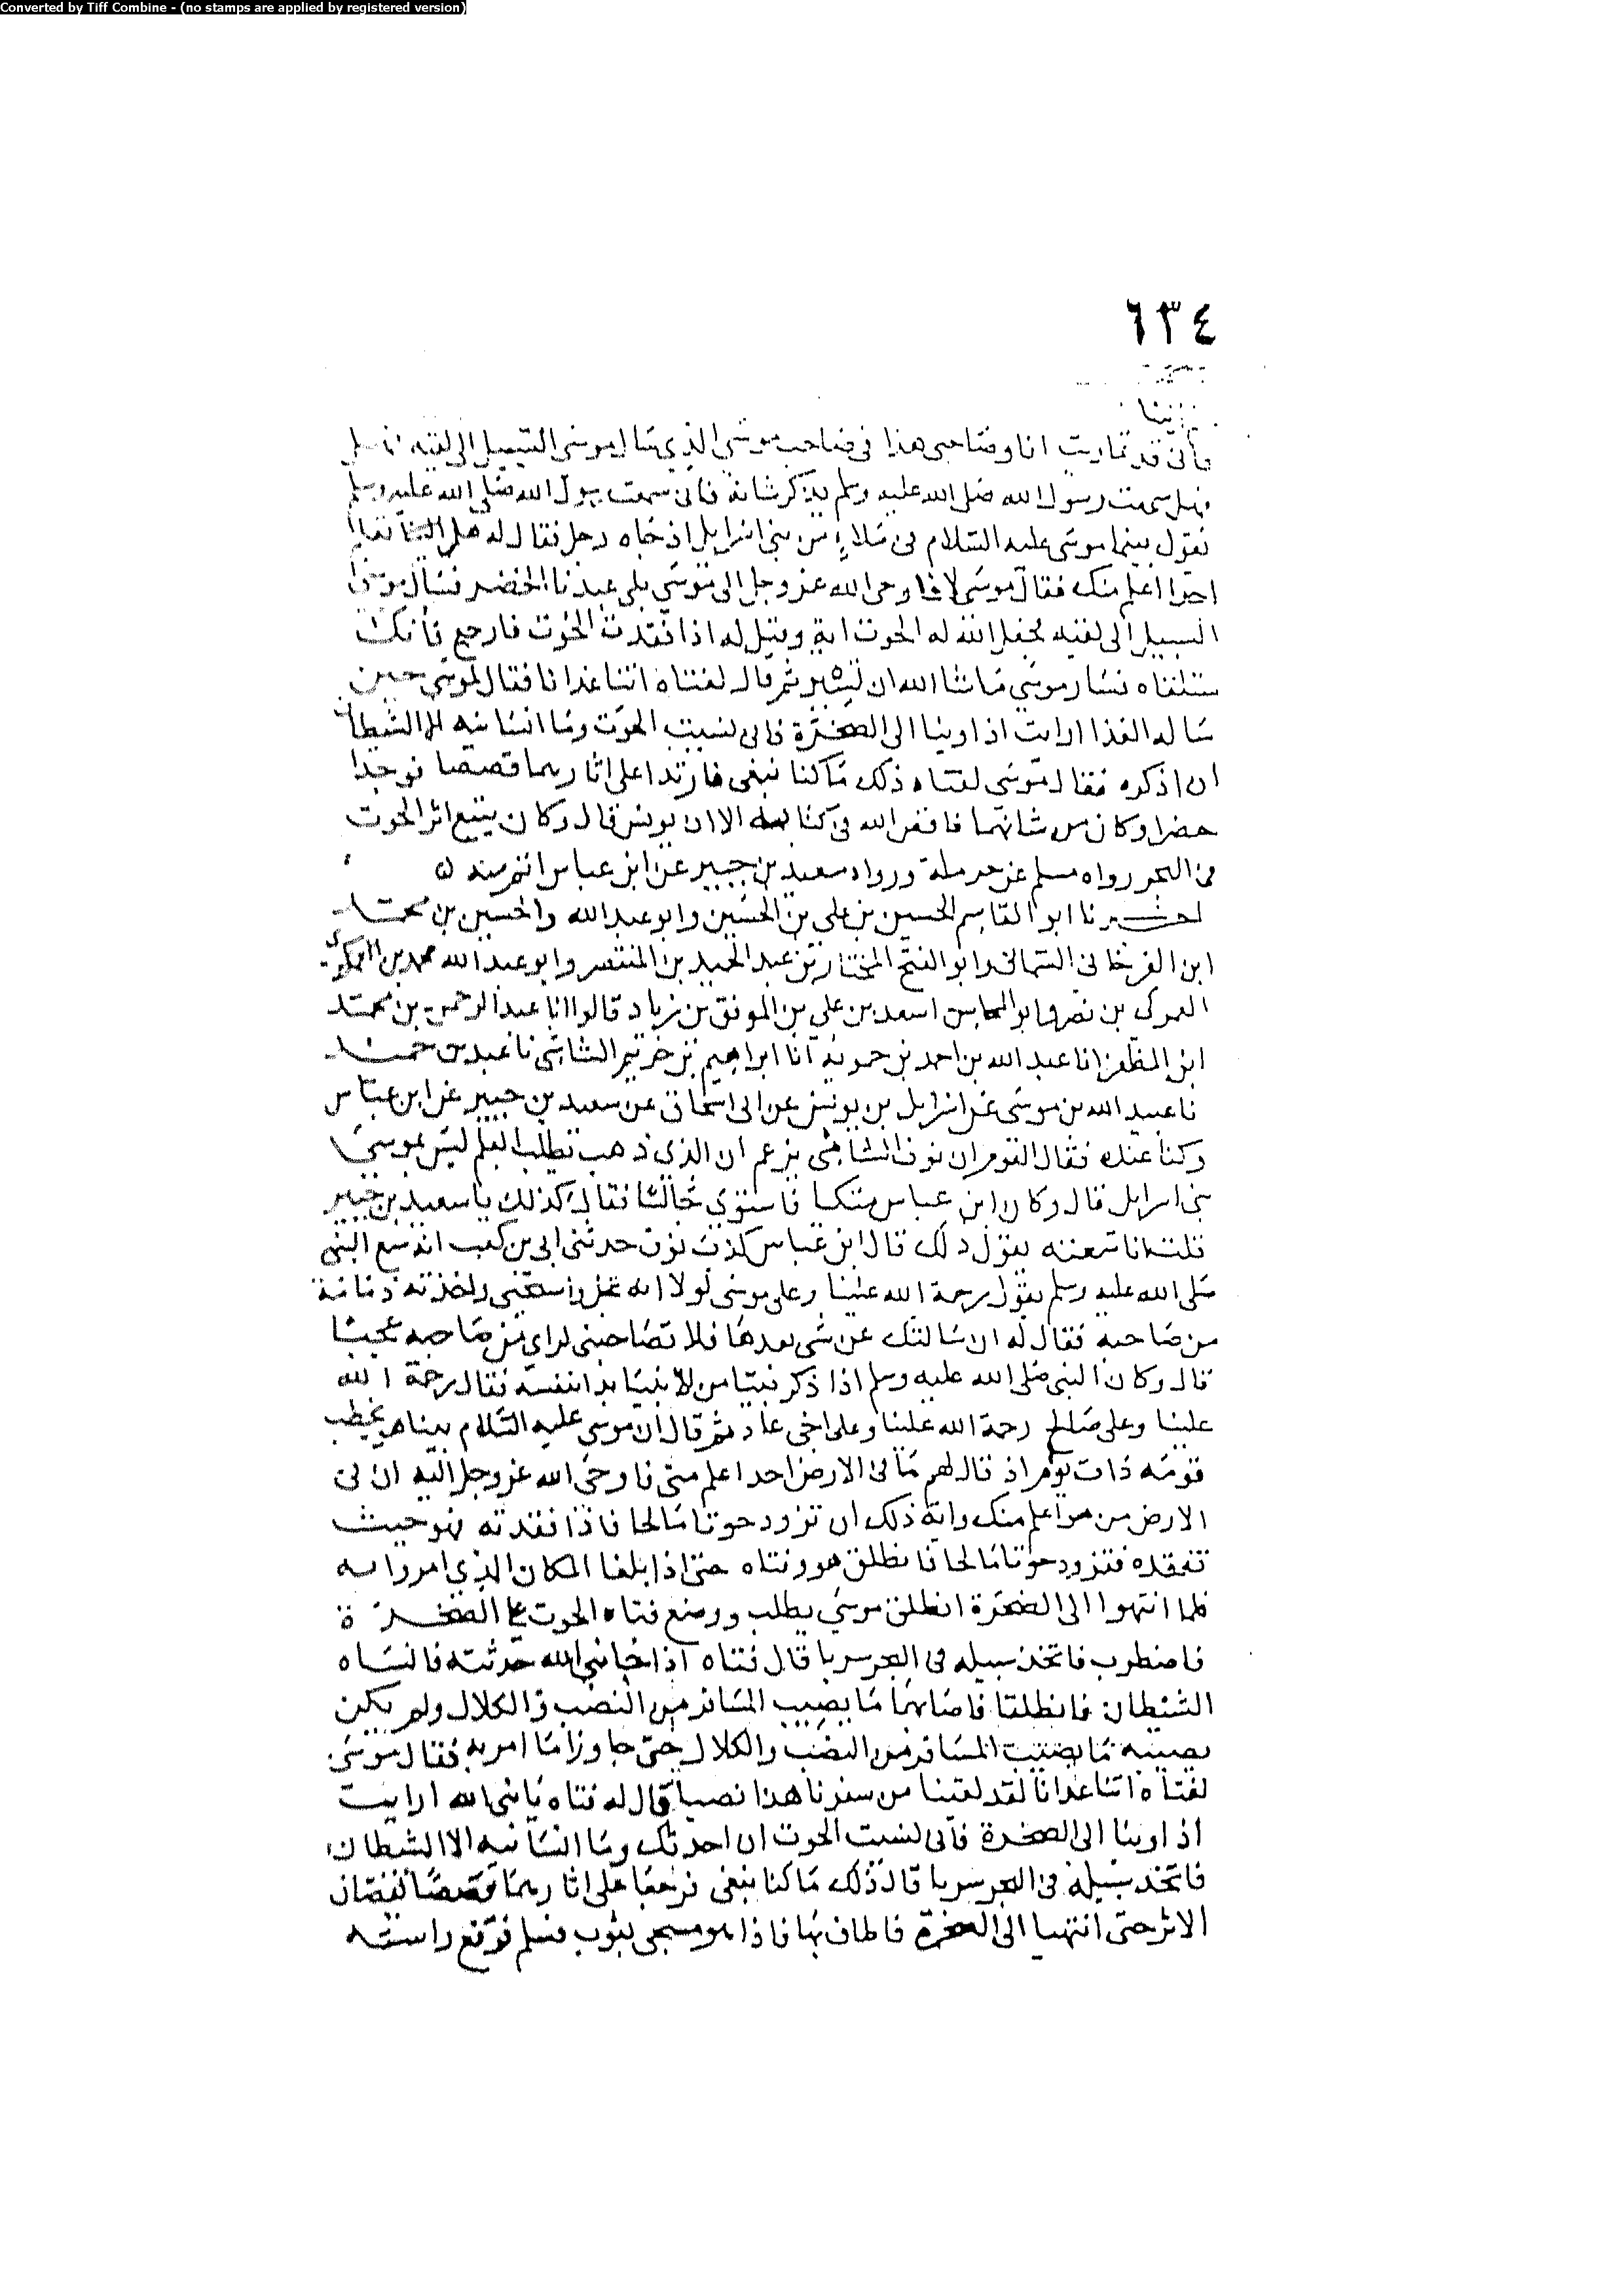 Converted by Tiff Combine - (no stamps are applied by registered version)
٦٣٤
فأنى قد تماريت انا وصاحبى هذا فى صاحب موسى الذى سال موسى السبيل الى لقيه
فهل سمعت رسول الله صلى الله عليه وسلم يذكر شانه فانى سمعت رسول الله صلى الله عليه وسلم
يقول بينما موسى عليه السلام فى ملاء من بنى اسرايل اذ جاه رجل فقال له هل
احدا اعلم منك فقال موسى لا فاوحى الله عز وجل الى موسى بلى عبدنا الخضر فسال موسى
السبيل الى لقيه فجعل الله له الحوت اية وقيل له اذا فقدت الحوت فارجع فأنك
ستلقاه فسار موسى ما شا الله ان يسير ثم قال لفتاه اتنا غدانا فقال لموسى حين
ساله الغدا ارايت اذ اوينا الى الصخرة فانى نسيت الحوت وما انسانيه الا الشيطان
ان اذكره فقال موسى لفتاه ذلك ما كنا نبغى فارتدا على اثارهما قصصا فوجدا
خضرا وكان من شانهما ما قص الله فى كتابه الا ان يونس قال وكان يتبع اثر الحوت
فى البحر رواه مسلم عن حرملة ورواه سعيد بن جبير عن ابن عباس اتم منه ٥
اخبرنا ابو القاسم الحسين بن على بن الحسين وابو عبد الله والحسين بن محمد
ابن الفرخانى السمانى وابو الفتح المختار بن عبد الحميد بن المنتصر وابو عبد الله محمد بن
العمركى بن نصر وابو المحاسن اسعد بن على بن الموفق بن زياد قالوا انا عبد الرحمن بن محمد
ابن المظفر انا عبد الله بن احمد بن حمويه انا ابراهيم بن خريم الشاشى نا عبد بن حميد
نا عبيد الله بن موسى عن اسرايل بن يونس عن ابى اسحاق عن سعيد بن جبير عن ابن عباس
وكنا عنده فقال القوم ان نوفا الشامى يزعم ان الذى ذهب يطلب العلم ليس بموسى
بنى اسرايل قال وكان ابن عباس متكيا فاستوى جالسا فقال كذلك يا سعيد بن جبير
قلت انا سمعته يقول ذلك قال ابن عباس كذب نوف حدثنى ابى بن كعب انه سمع النبى
صلى الله عليه وسلم يقول رحمة الله علينا وعلى موسى لولا انه عجل واستحيى واخذته ذمامة
من صاحبه فقال له ان سالتك عن شى بعدها فلا تصاحبنى لراى من صاحبه عجبا
قال وكان النبى صلى الله عليه وسلم اذا ذكر نبيا من الانبيا بدا بنفسه فقال رحمة الله
علينا وعلى صالح رحمة الله علينا وعلى اخى عاد ثم قال ان موسى عليه السلام بينا هو يخطب
قومه ذات يوم اذ قال لهم ما فى الارض احد اعلم منى فاوحى الله عز وجل اليه ان فى
الارض من هو اعلم منك واية ذلك ان تزود حوتا مالحا فاذا فقدته فهو حيث
تفقده فتزود حوتا مالحا فانطلق هو وفتاه حتى اذا بلغا المكان الذى امروا به
فلما انتهوا الى الصخرة انطلق موسى يطلب ووضع فتاه الحوت على الصخرة
فاضطرب فاتخذ سبيله فى البحر سربا قال فتاه اذا جا نبى الله حدثته فانساه
الشيطان فانطلقا فاصابهما ما يصيب المسافر من النصب والكلال ولم يكن
يصيبه ما يصيب المسافر من النصب والكلال حتى جاوزا ما امر به فقال موسى
لفتاه اتنا غدانا لقد لقينا من سفرنا هذا نصبا قال له فتاه يا نبى الله ارايت
اذ اوينا الى الصخرة فانى نسيت الحوت ان احدثك وما انسانيه الا الشيطان
فاتخذ سبيله فى البحر سربا قال ذلك ما كنا نبغى فرجعا على اثارهما قصصا يقصان
الاثر حتى انتهيا الى الصخرة فاطاف بها فاذا هو مسجى بثوب فسلم فرفع راسه